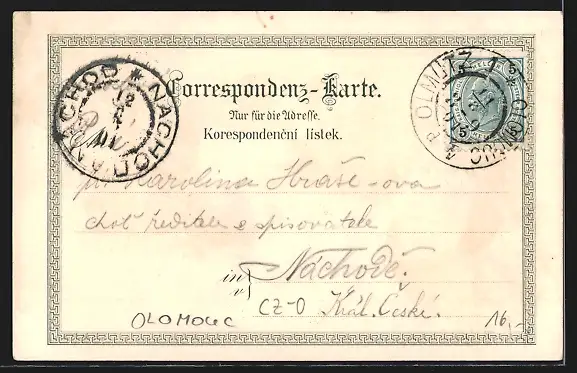 Correspondenz-Karte.
Nur für die Adresse.
Korespondenční lístek.
NACHOD * NACHOD
OLMÜTZ 1
OLOMOUC
5 5
5 5
Karolina Hraše-ova
choť ředitele a spisovatele
in
v
Náchodě.
CZ-O Král. České.
OLOMOUC
16,-